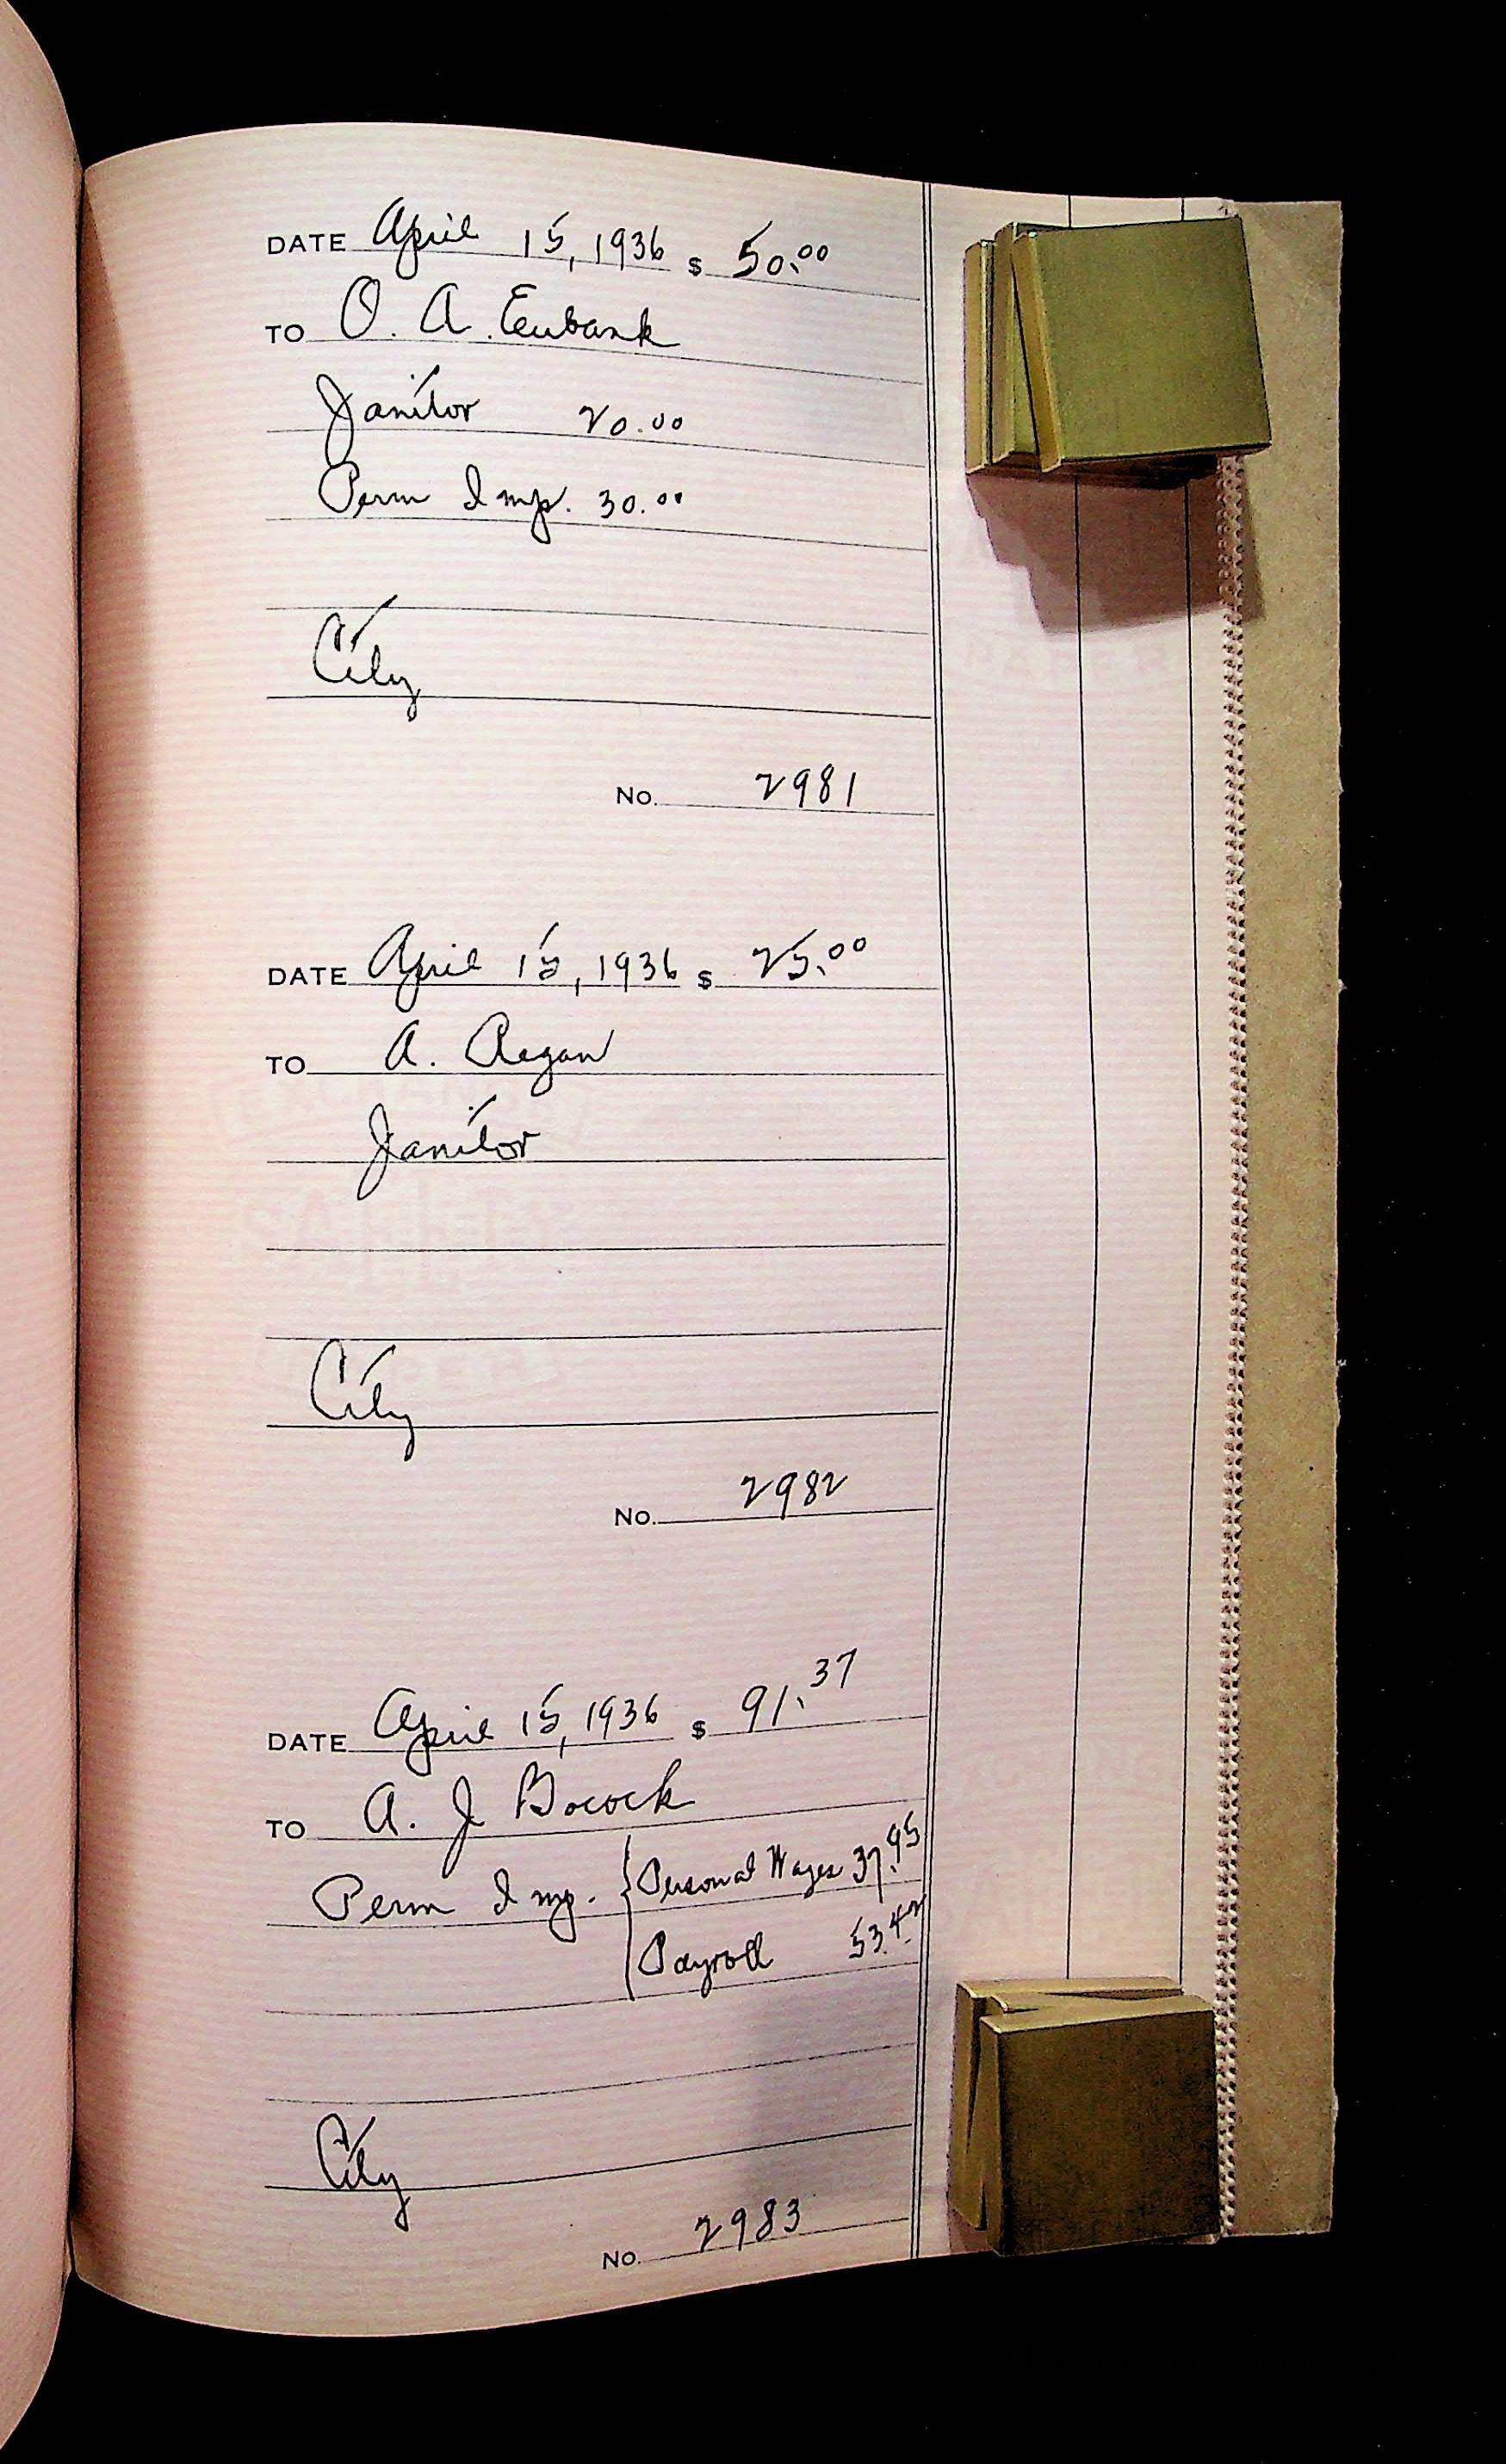 DATE April 15, 1936 $ 50.00
TO O. A. Eubank
Janitor 20.00
Perm Imp. 30.00
City
No. 2981
DATE April 15, 1936 $ 25.00
TO A. Regan
Janitor
City
No. 2982
DATE April 15, 1936 $ 91.37
TO A. J. Bocock
Perm Imp. { Personal Wages 37.95
Payroll 53.42
City
No. 2983